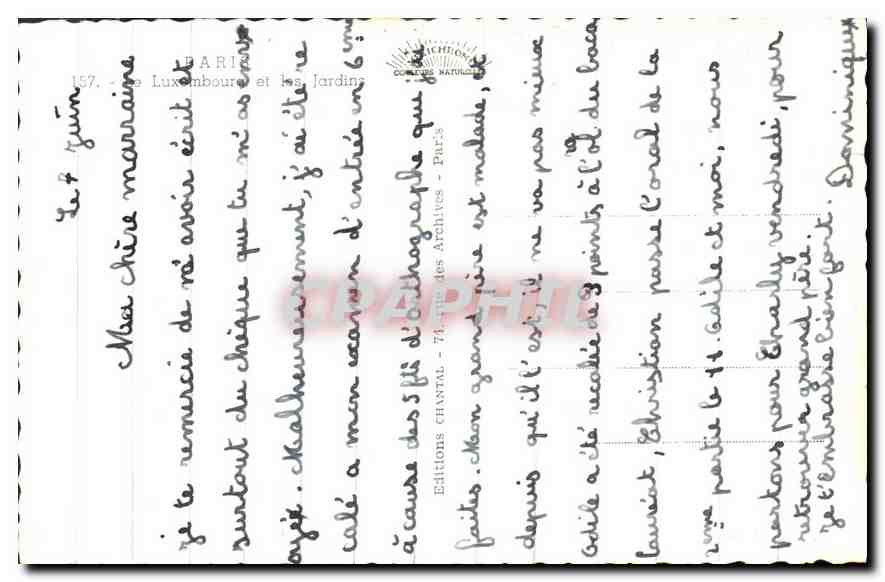 PARIS
157. - Le Luxembourg et les Jardins
COULEURS NATURELLES
Editions CHANTAL - 74, rue des Archives - Paris
CPAPHIL
Juin
Ma chère marraine
je te remercie de m'avoir écrit et
surtout du chèque que tu m'as env
oyé. Malheureusement, j'ai été re
calé a mon examen d'entrée en 6ème
à cause des 5 f d'orthographe que j'ai
faites. Mon grand père est malade, et
depuis qu'il l'est, il ne va pas mieux
Odile a été recalée de 9 points à l'ol du bacca
lauréat, Christian passe l'oral de la
2ème partie le 11. Odile et moi, nous
partons pour Charly vendredi, pour
retrouver grand père.
Je t'embrasse bien fort. Dominique